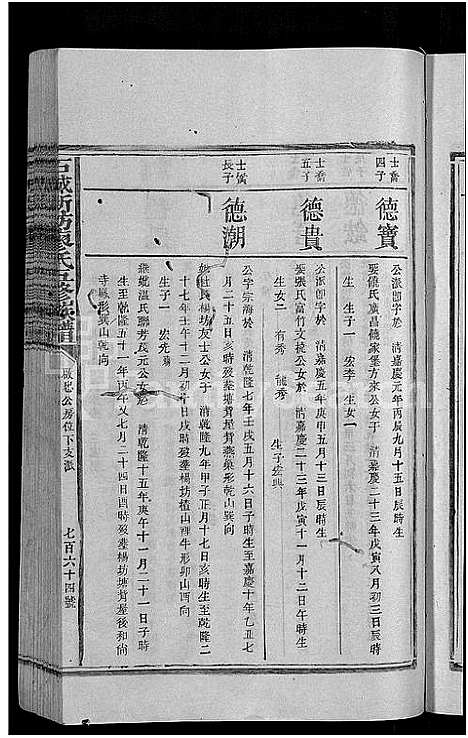 士喬四子
德寶
公派卽字於 清嘉慶元年丙辰九月十五日辰時生
娶張氏廣昌饒家堡方來公女于 清嘉慶二十三年戊寅八月初三日辰時
生 生子一 宏李 生女一
士喬五子
德貴
公派卽字於 清嘉慶五年庚申五月十三日辰時生
娶張氏富竹文模公女於 清嘉慶二十三年戊寅十一月十二日午時生
生女二 有秀 能秀 生子宏興
士 長子
德潮
公字宗海於 清乾隆七年壬戌五月十六日子時生至嘉慶十年乙丑七
月二十五日亥時歿塟塘背屋背燕巢形乾山巽向
杜氏楊坊友士公女于 清乾隆九年甲子正月十七日亥時生至乾隆二
十七年壬午十二月初三日戌時歿塟楊坊楂山裡牛形卯山酉向
生子一 宏先
溫氏 茂元公女於 清乾隆十五年庚午十一月二十一日子時
生至乾隆五十一年丙午又七月二十四日酉時歿塟楊坊塘背屋後和尚
寺 形 山乾向
石城 坊 氏五修族譜
啟 公房位下支派
七百六十四號